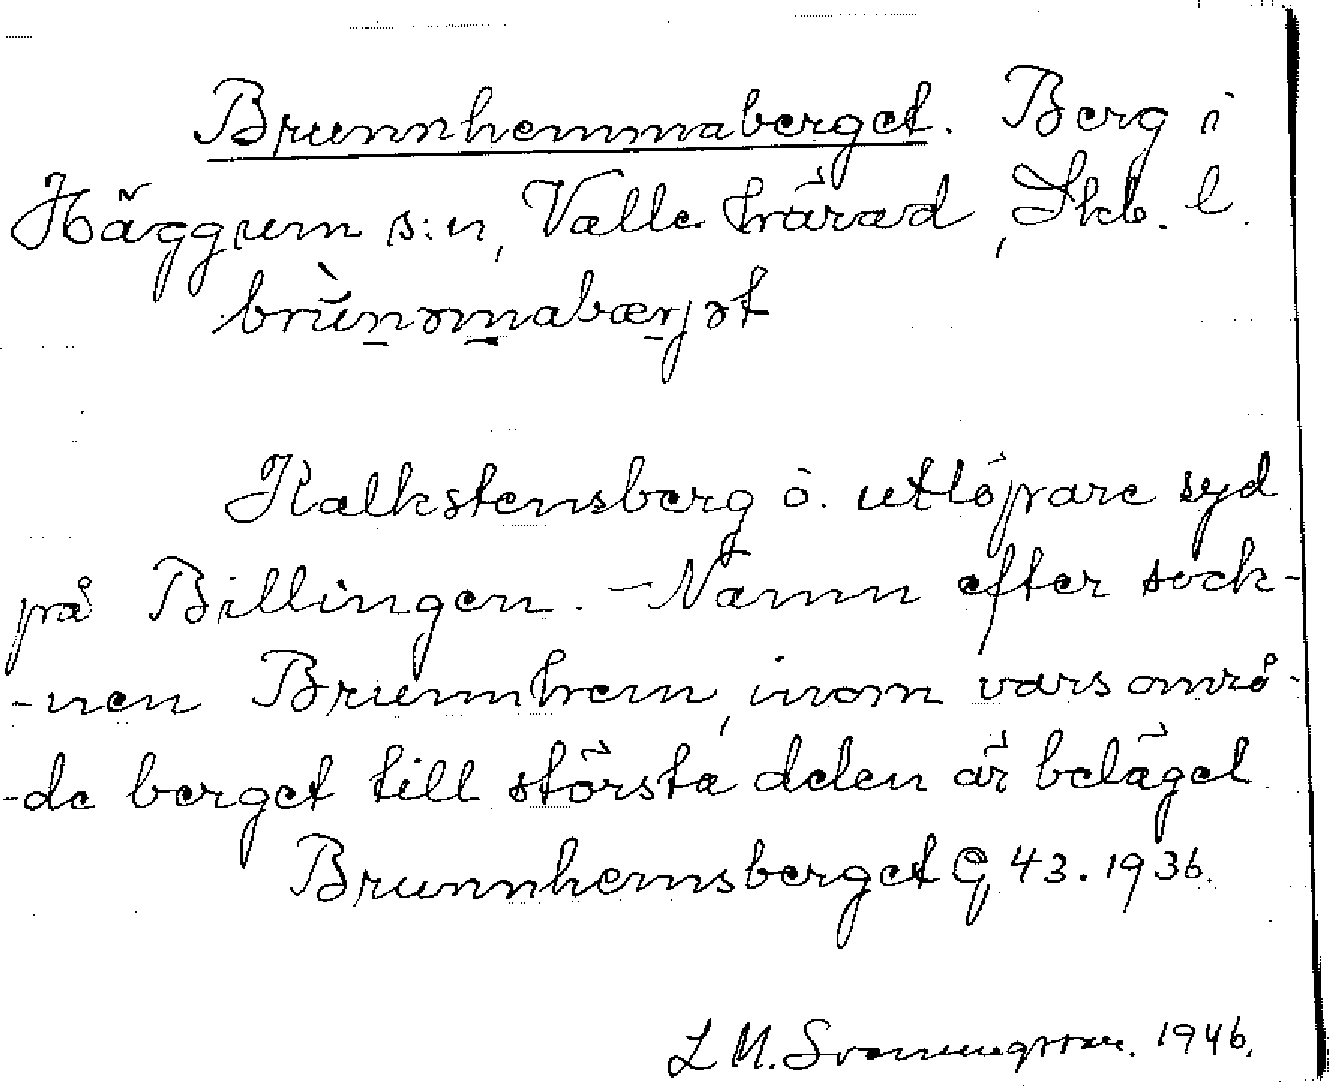 Brunnhemmaberget. Berg i
Häggum s:n, Valle härad, Skb. l.
brùn̲əm̲abær̲jət
Kalkstensberg o. utlöpare syd
på Billingen. – Namn efter sock-
-nen Brunnhem, inom vars områ-
-de berget till största delen är beläget
Brunnhemsberget G 43. 1936.
L M. Svenungsson. 1946.